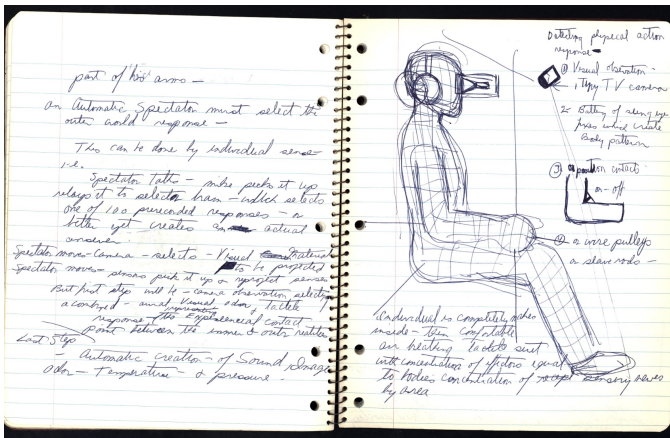 part of his arms —
an Automatic Spectator must select the
outer world response —
This can be done by individual sense
i.e.
Spectator Talks — mike picks it up
relays it to selector — which selects
one of 100 prerecorded responses — or
better yet creates actual
answer
Spectator moves — Camera — selects — Visual material
to be projected
Spectator moves — sensors pick it up &
But first step will be — camera observation, selecting
a combined — aural Visual odor & tactile
response representing the Experiencial contact
point between the inner & outer realities
Last Step
— Automatic creation — of Sound Image
odor — Temperature — & pressure.
Detecting physical action
response —
① Visual observation —
1 Tiny TV camera
2. Battery of seeing eye
which create
Body pattern
③ a position contacts
on - off
④ a wire pulleys
a slave rods —
individual is completely
inside — then comfortable
an heating tactile suit
with concentration of effectors equal
to bodies concentration of sensory nerves
by area